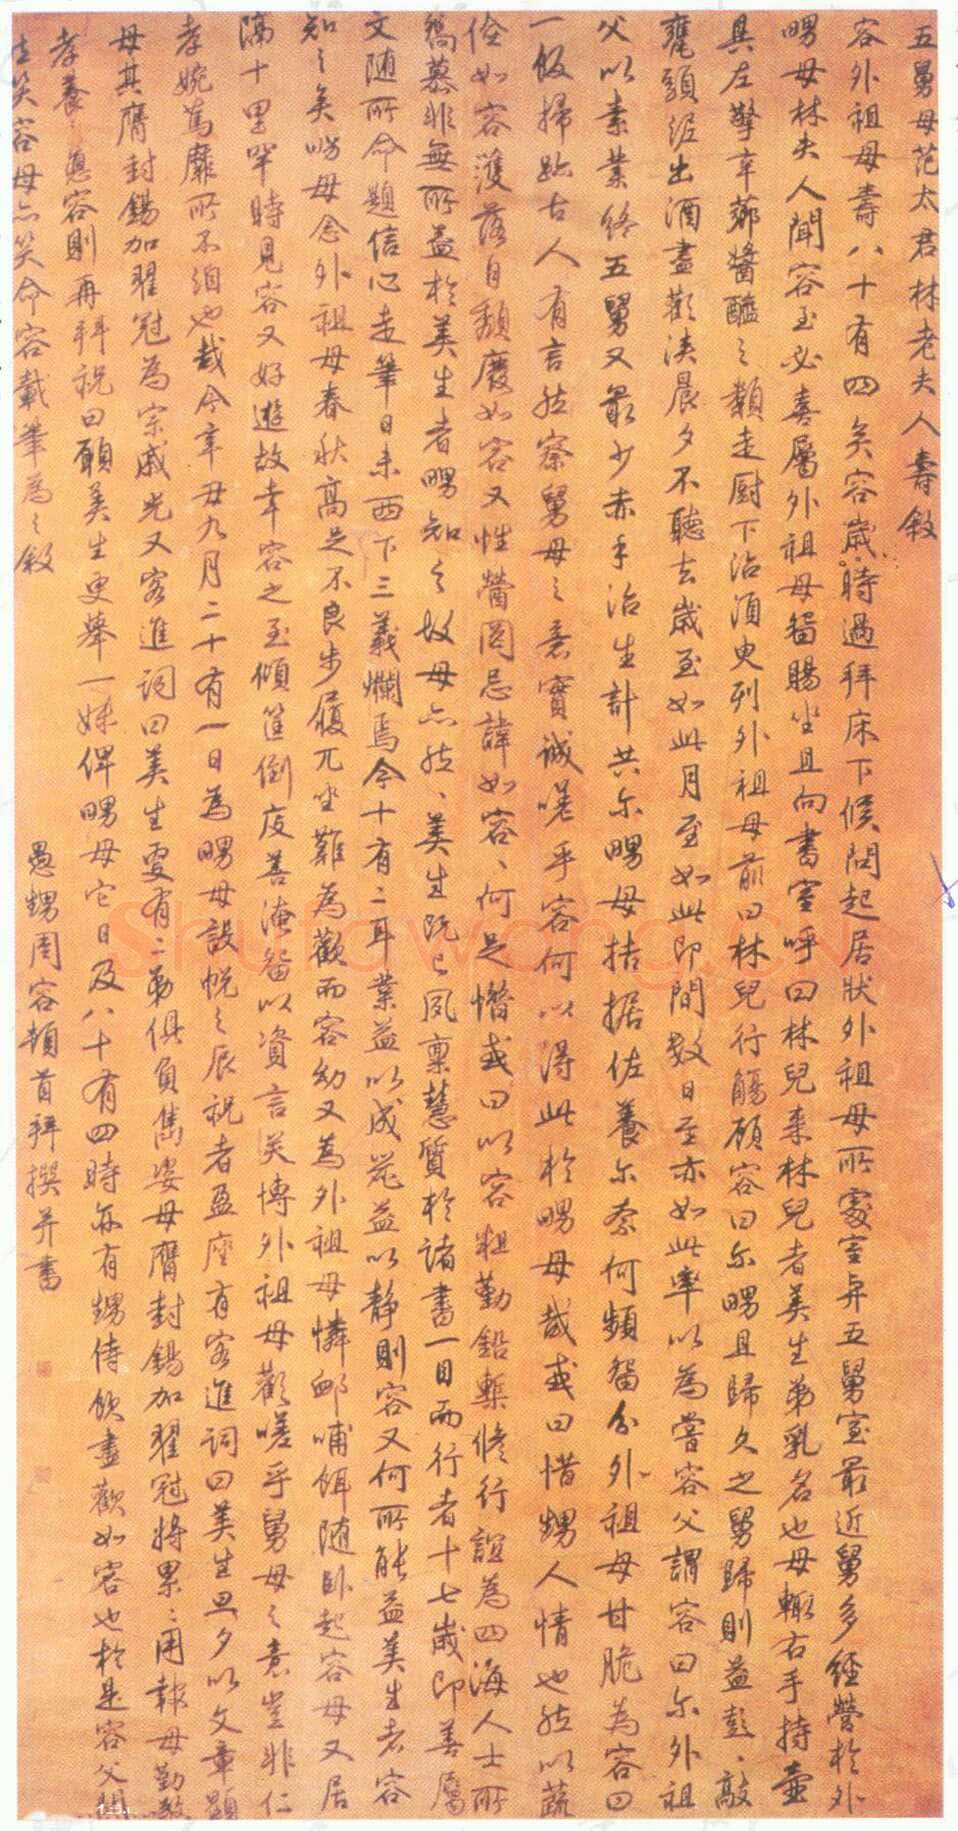 五舅母范太君林老夫人壽敘
容外祖母壽八十有四矣容歲時過拜床下候問起居狀外祖母所處室與五舅室最近舅多經營於外
舅母林夫人聞容至必喜屬外祖母留賜坐且向書室呼曰林兒來林兒者美生弟乳名也母輒右手持壺
具左擎辛薌醬醢之類走厨下治湏臾列外祖母前曰林兒行觴顧容曰尔舅且歸久之舅歸則益彭彭敲
甕頭涇出酒盡歡浹晨夕不聽去歲至如此月至如此即間數日至亦如此率以為嘗容父謂容曰尔外祖
父以素業終五舅又最少赤手治生計共尔舅母拮据佐養尔奈何頻留分外祖母甘脆為容曰
一飯掃跡古人有言然察舅母之意實誠嗟乎容何以得此於舅母哉或曰惜甥人情也然以蔬
倿如容濩落自頹廢如容又性懵罔忌諱如容容何足惜或曰以容粗勤鉛槧脩行誼為四海人士所
喬慕非無所益於美生者舅知之故母亦然然美生既已夙稟慧質於諸書一目而行者十七歲即善屬
文随所命題信心走筆日未西下三義爛焉今十有二耳業益以成蓺益以静則容又何所能益美生者容
知之矣舅母念外祖母春秋高足不良步履兀坐難為歡而容幼又為外祖母憐卹哺餌随卧起容母又居
隔十里罕時見容又好遊故幸容之至傾筐倒庋善淹留以資言笑博外祖母歡嗟乎舅母之意豈非仁
孝婉篤靡所不須也哉今辛丑九月二十有一日為舅母設帨之辰祝者盈座有客進詞曰美生旦夕以文章顯
母其膺封錫加翟冠為宗戚光又客進詞曰美生更有二弟俱負雋姿母膺封錫加翟冠將累累用報母勤敬
孝養之意容則再拜祝曰願美生更舉一妹俾舅母它日及八十有四時亦有甥侍飲盡歡如容也於是容父聞
之笑容母亦笑命容載筆為之敘
愚甥周容頓首拜撰并書
Shufawang.CN